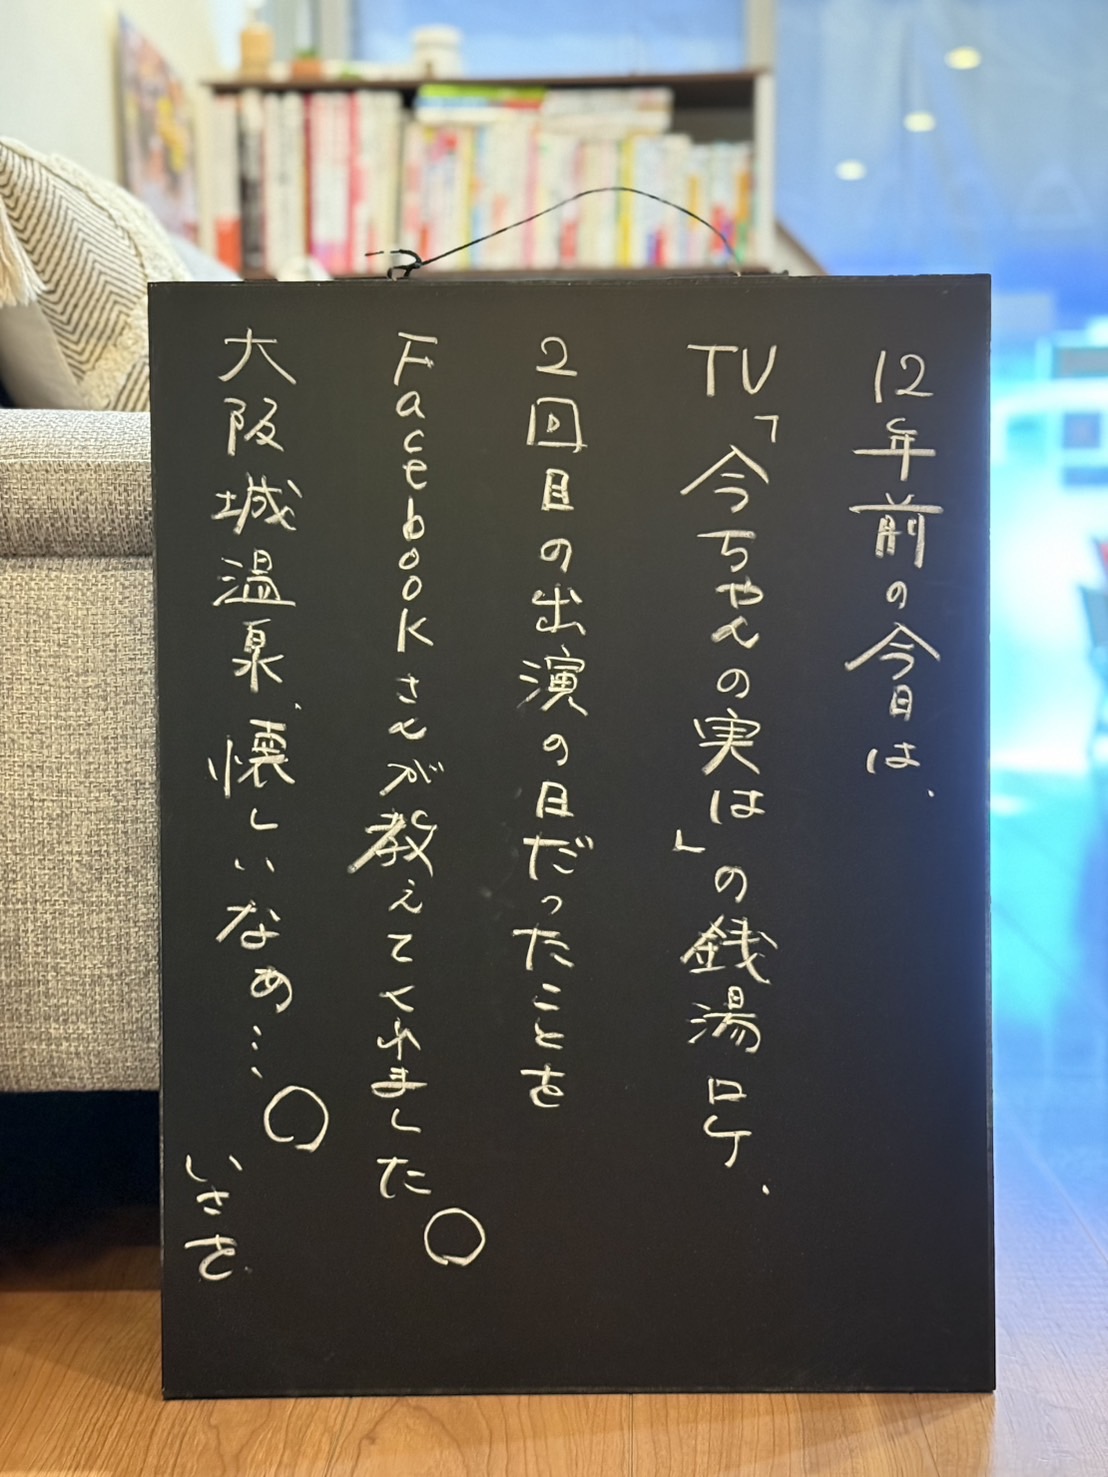 12年前の今日は、
TV「今ちゃんの実は」の銭湯ロケ、
2回目の出演の日だったことを
Facebookさんが教えてくれました。
大阪城温泉、懐しいなぁ…。
いさを